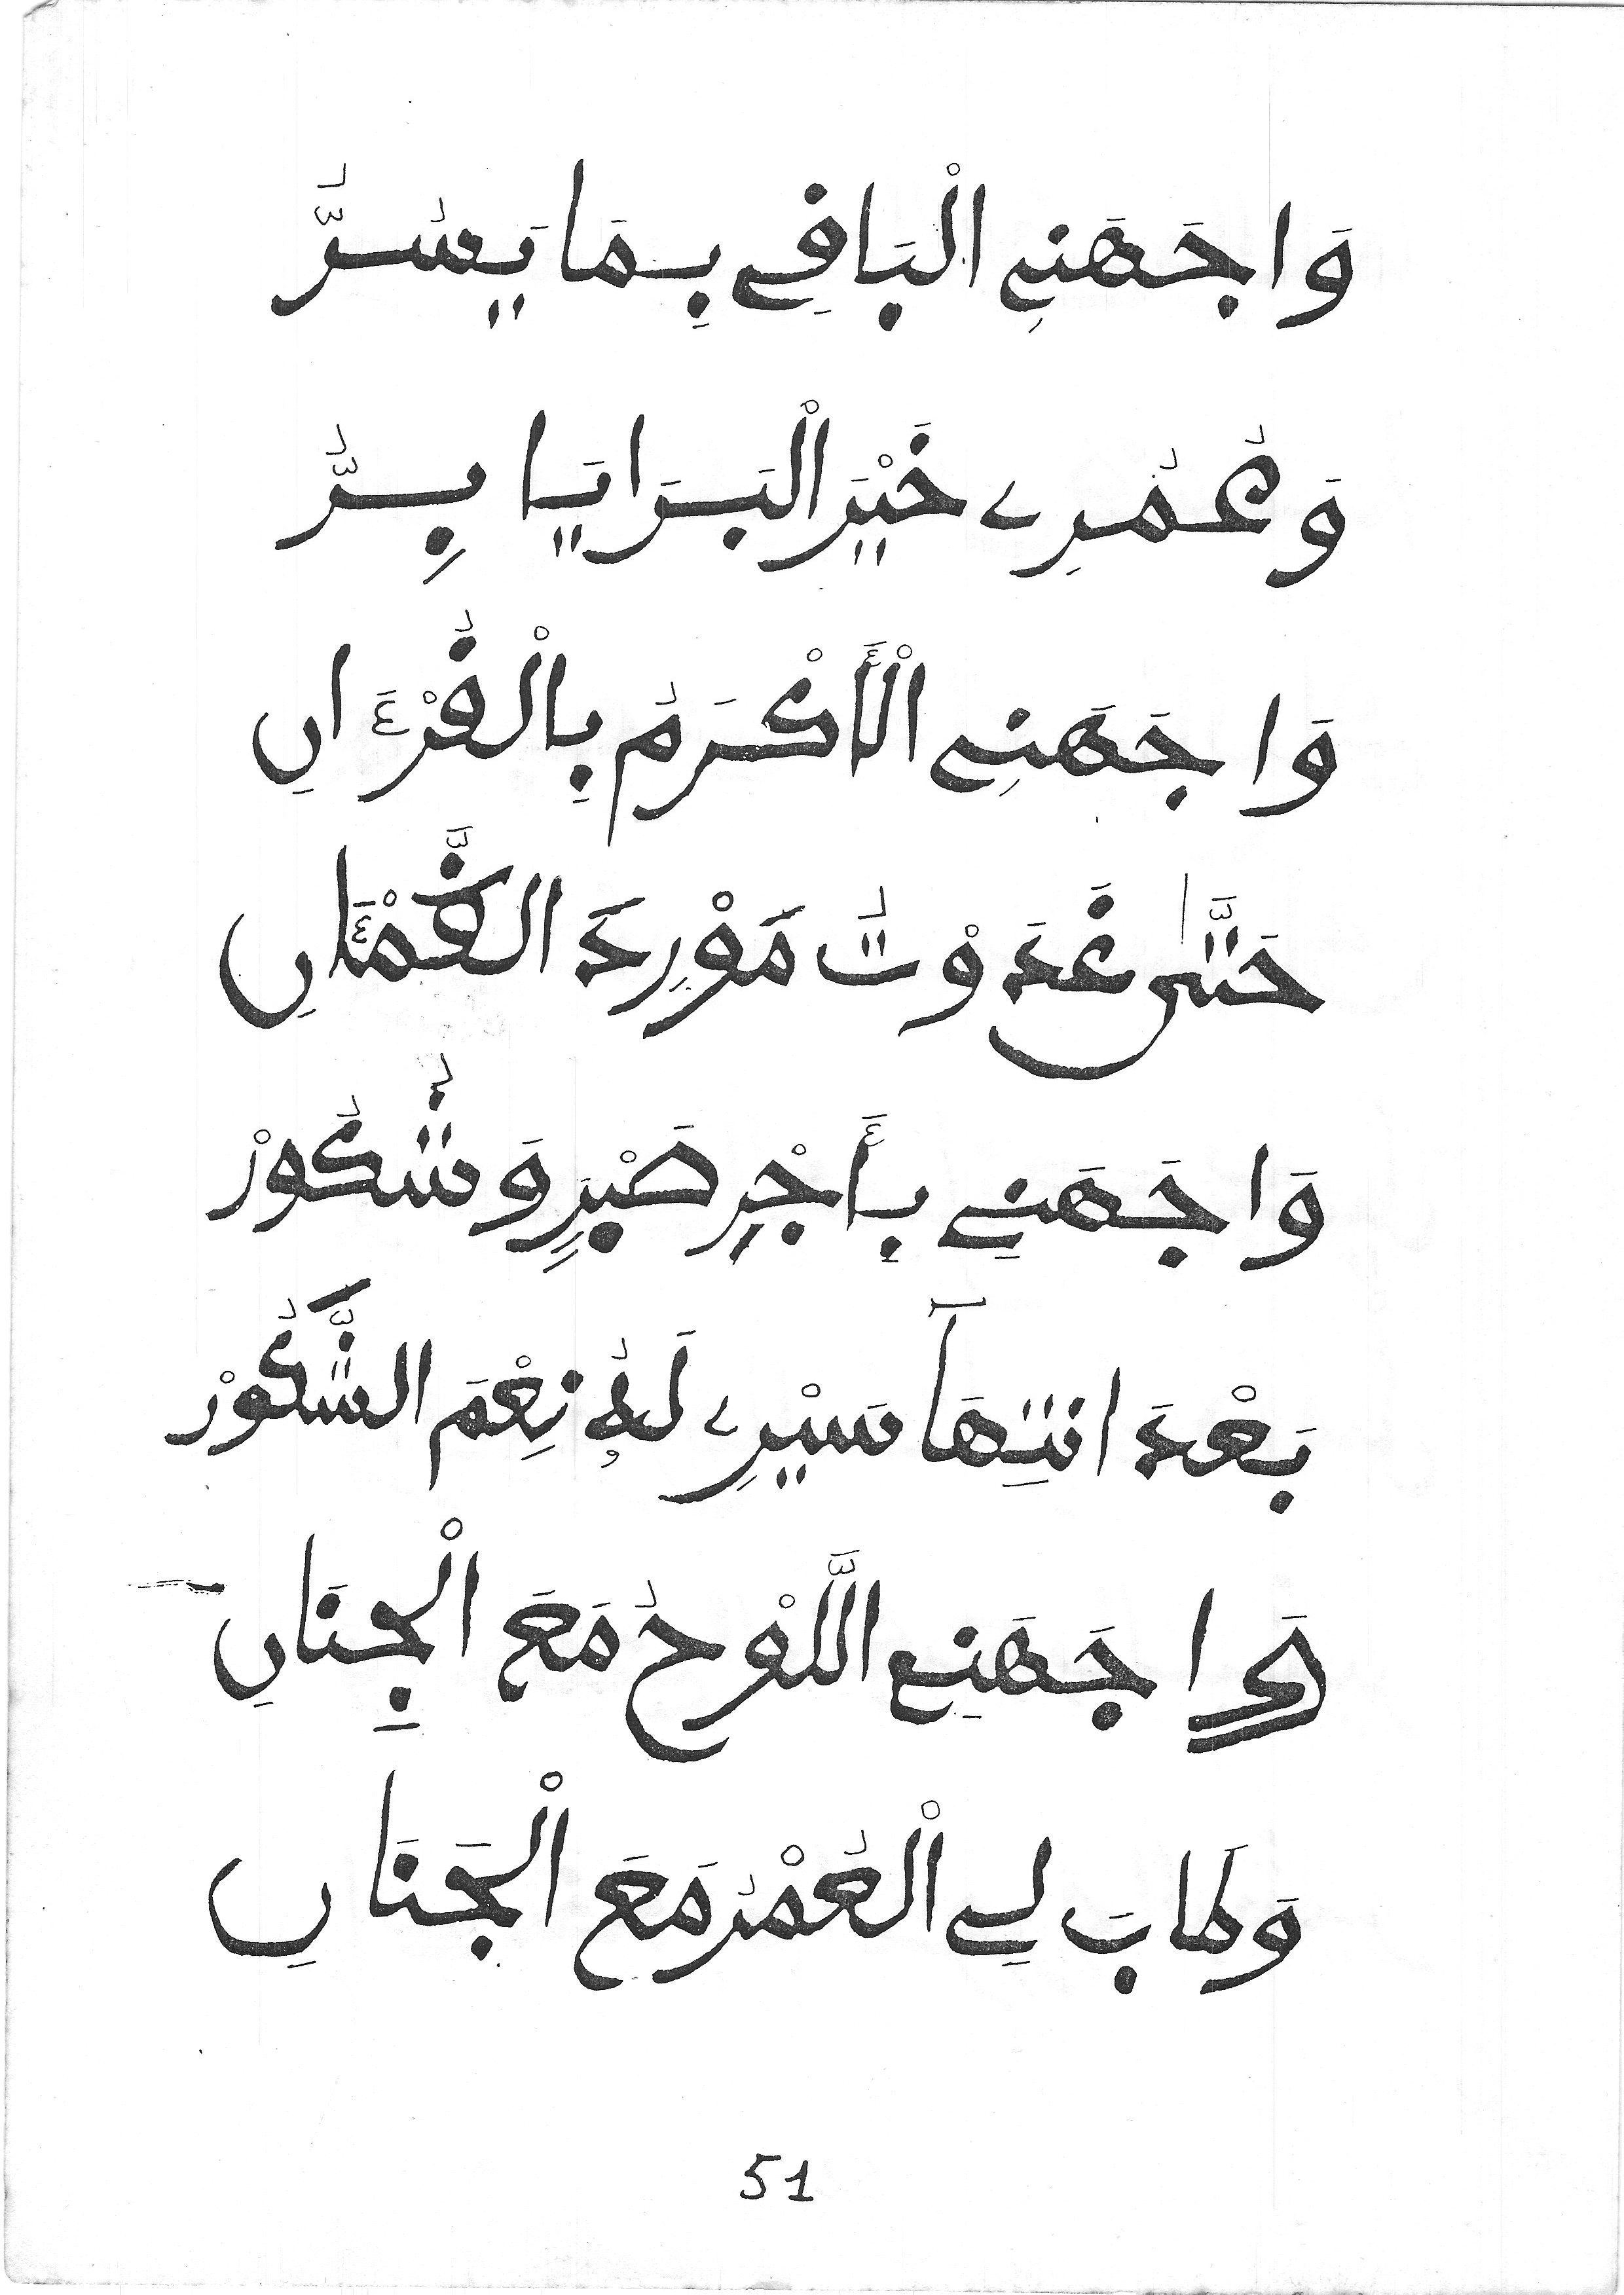 وَاجَهَنِي الْبَاقِي بِمَا يَسُرُّ
وَعُمُرِي خَيْرَ الْبَرَايَا بِرُّ
وَاجَهَنِي الْأَكْرَمُ بِالْقُرْءَانِ
حَتَّىٰ غَدَوْتُ مَوْرِدَ الظَّمْئَانِ
وَاجَهَنِي بِأَجْرِ صَبْرٍ وَشُكُورْ
بَعْدَ انتِهَآ سَيْرِي لَهُ نِعْمَ الشَّكُورْ
وَاجَهَنِي اللَّوْحُ مَعَ الْجِنَانِ
وَطَابَ لِي الْعُمْرُ مَعَ الْجَنَانِ
51